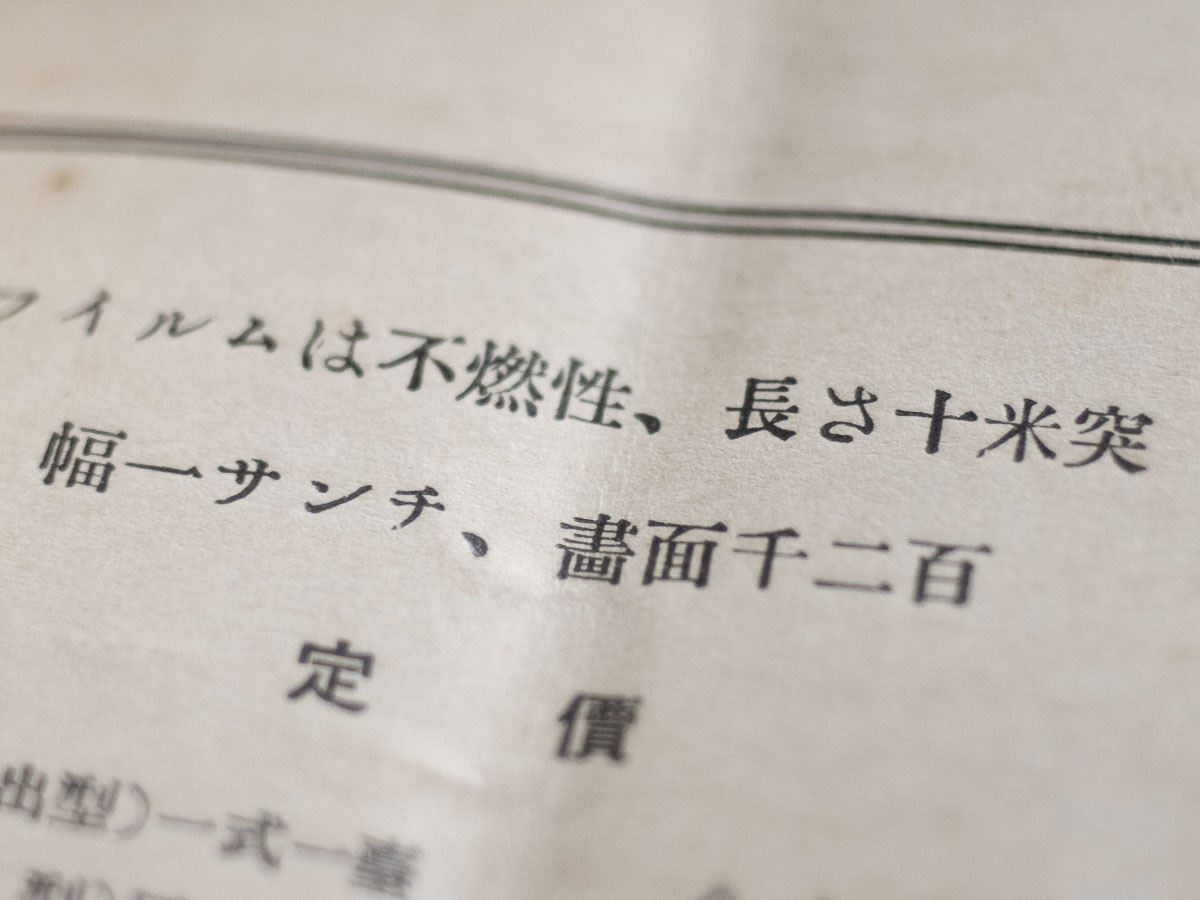 フイルムは不燃性、長さ十米突
幅一サンチ、畫面千二百
定價
出型)一式一臺
型)